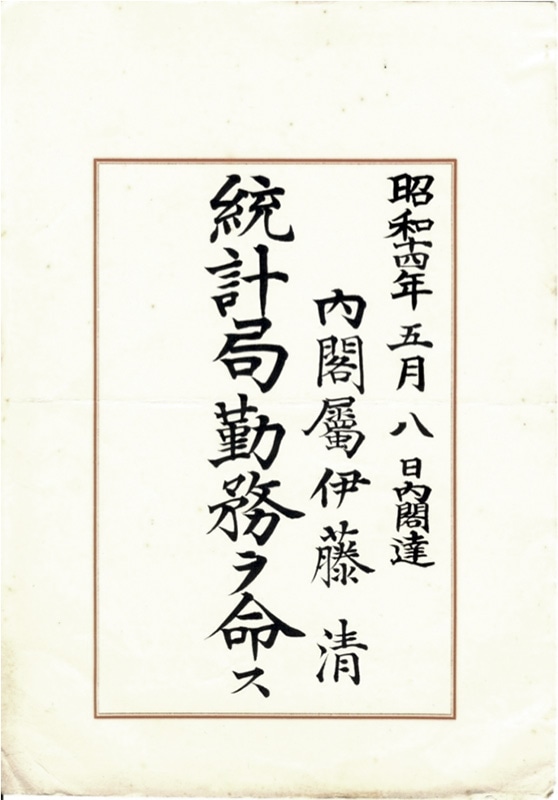 昭和十四年五月八日内閣達
内閣屬伊藤清
統計局勤務ヲ命ス